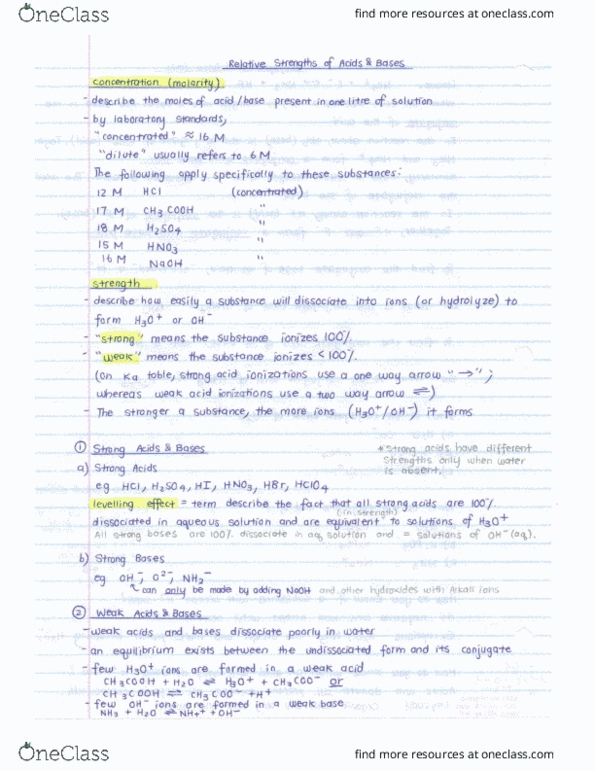 OneClass
find more resources at oneclass.com
Relative Strengths of Acids & Bases
concentration (molarity)
- describe the moles of acid/base present in one litre of solution
- by laboratory standards,
"concentrated" ≈ 16 M
"dilute" usually refers to 6 M
The following apply specifically to these substances:
12 M HCl (concentrated)
17 M CH3COOH "
18 M H2SO4 "
15 M HNO3 "
16 M NaOH "
strength
- describe how easily a substance will dissociate into ions (or hydrolyze) to
form H3O+ or OH-
- "strong" means the substance ionizes 100%.
- "weak" means the substance ionizes <100%.
(on Ka table, strong acid ionizations use a one way arrow "→";
whereas weak acid ionizations use a two way arrow ⇌)
- The stronger a substance, the more ions (H3O+/OH-) it forms
① Strong Acids & Bases
* Strong acids have different
strengths only when water
is absent.
a) Strong Acids
eg HCl, H2SO4, HI, HNO3, HBr, HClO4
levelling effect = term describe the fact that all strong acids are 100%
dissociated in aqueous solution and are equivalent (in strength) to solutions of H3O+
All strong bases are 100% dissociate in aq solution and = solutions of OH-(aq).
b) Strong Bases
eg OH-, O2-, NH2-
can only be made by adding NaOH and other hydroxides with Alkali ions
② Weak Acids & Bases
- weak acids and bases dissociate poorly in water
- an equilibrium exists between the undissociated form and its conjugate
- few H3O+ ions are formed in a weak acid
CH3COOH + H2O ⇌ H3O+ + CH3COO- or
CH3COOH ⇌ CH3COO- + H+
- few OH- ions are formed in a weak base
NH3 + H2O ⇌ NH4+ + OH-
OneClass
find more resources at oneclass.com